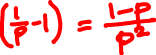 (1/p - 1) = (1-p)/p²